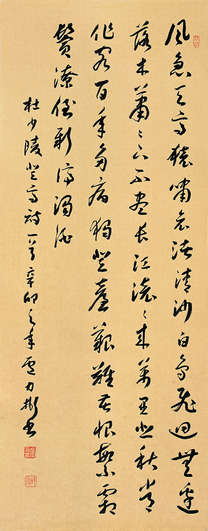 風急天高猿嘯哀渚清沙白鳥飛迴無邊
落木蕭〻下不盡長江滾〻來萬里悲秋常
作客百年多病獨登臺艱難苦恨繁霜
鬢潦倒新停濁酒
杜少陵登高詩一首辛卯之年盧力彬書